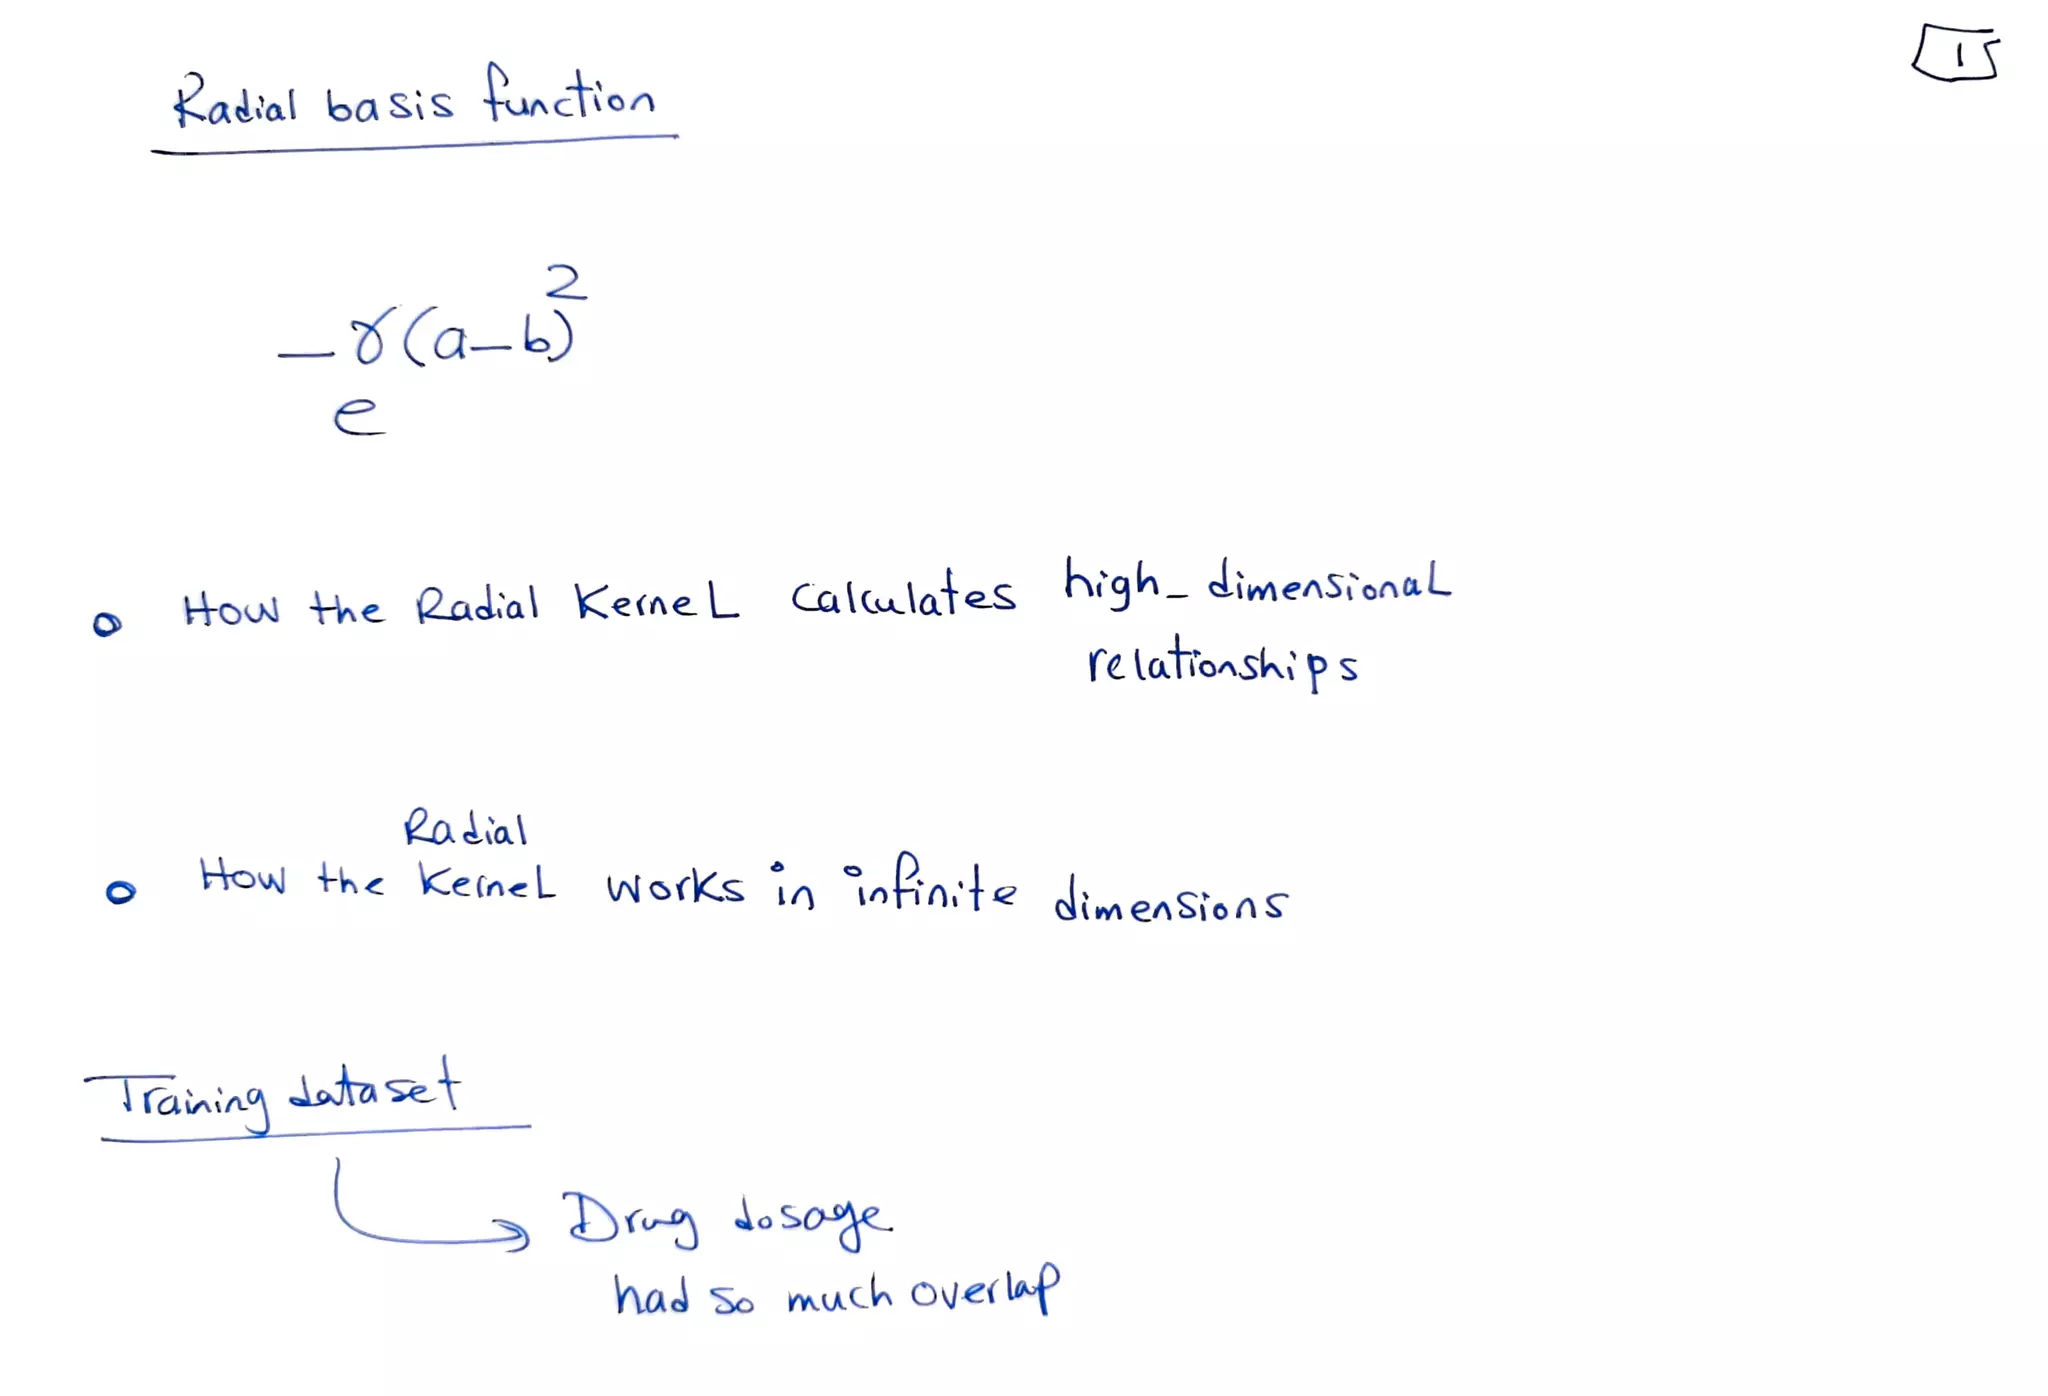 1
Radial basis function
e^{-γ(a-b)^2}
o How the Radial Kernel calculates high-dimensional
relationships
Radial
o How the Kernel works in infinite dimensions
Training dataset
Drug dosage
had so much overlap